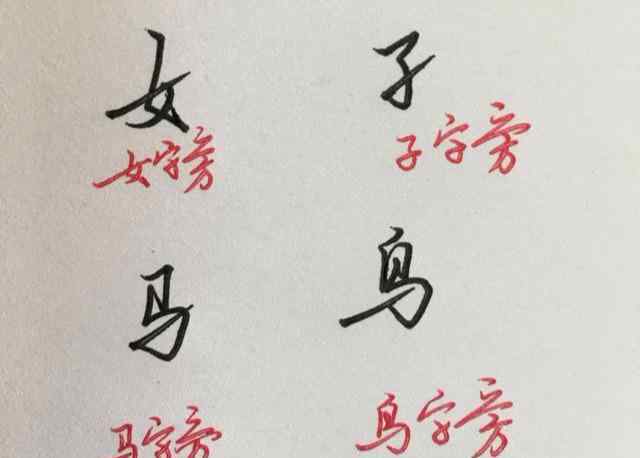 女 子
女字旁 子字旁
马 鸟
马字旁 鸟字旁